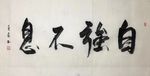 自強不息